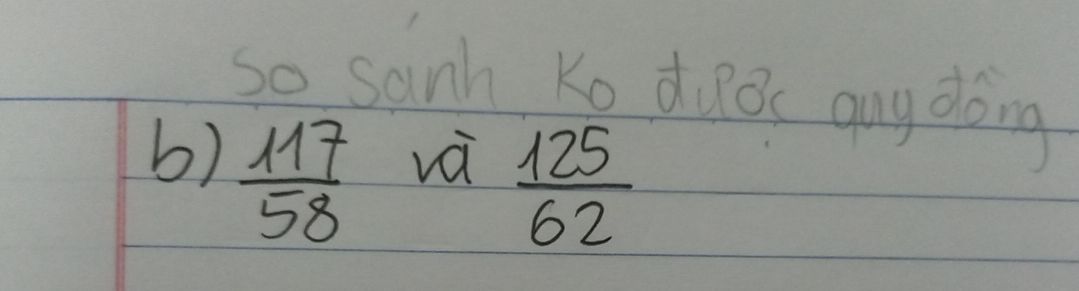 So sánh Ko được quy đồng
b) 117/58 và 125/62